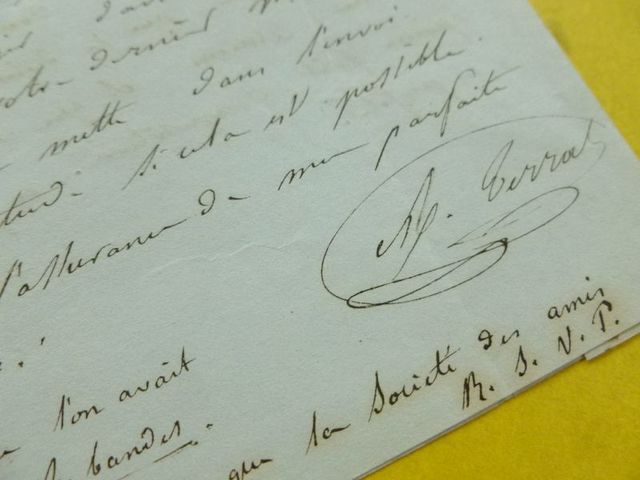 dernier
mette dans l'envoi
si cela est possible.
l'assurance de ma parfaite
M. Terral
l'on avait
bandes.
que la Société des amis
R. S. V. P.